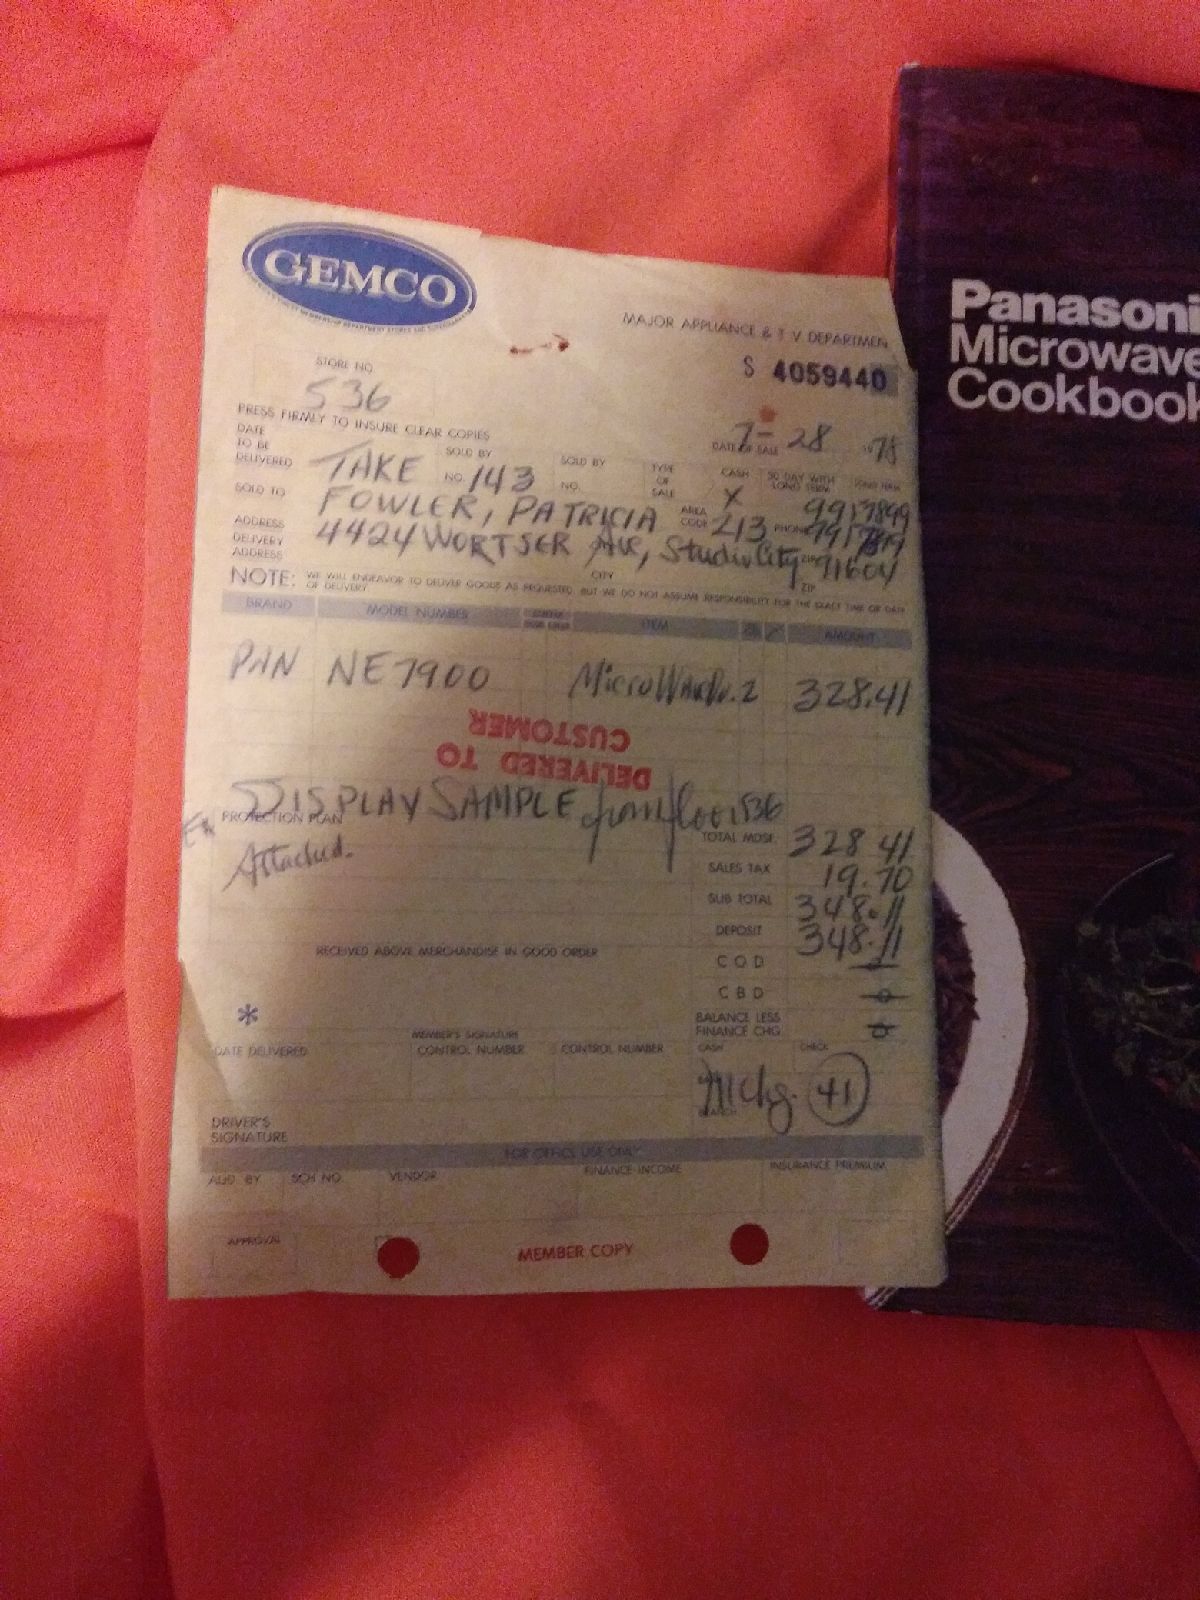 GEMCO
MAJOR APPLIANCE & T V DEPARTMEN
STORE NO.
536
S 4059440
PRESS FIRMLY TO INSURE CLEAR COPIES
DATE OF SALE 7-28 1978
DATE TO BE DELIVERED TAKE SOLD BY NO. 143 SOLD BY NO. TYPE OF SALE CASH X 30 DAY WITH LONG TERM LONG TERM
SOLD TO FOWLER, PATRICIA AREA CODE 213 PHONE 9917899
ADDRESS 4424 WORTSER Ave, Studio City ZIP 91604
DELIVERY ADDRESS CITY ZIP
NOTE: WE WILL ENDEAVOR TO DELIVER GOODS AS REQUESTED BUT WE DO NOT ASSUME RESPONSIBILITY FOR THE EXACT TIME OR DATE
OF DELIVERY
BRAND MODEL NUMBER ITEM AMOUNT
PAN NE7900 328.41
DELIVERED TO
CUSTOMER
DISPLAY SAMPLE from floor 536
PROTECTION PLAN
Attached.
TOTAL MDSE. 328.41
SALES TAX 19.70
SUB TOTAL 348.11
DEPOSIT 348.11
RECEIVED ABOVE MERCHANDISE IN GOOD ORDER
C O D
C B D
BALANCE LESS
FINANCE CHG
*
MEMBER'S SIGNATURE
DATE DELIVERED CONTROL NUMBER CONTROL NUMBER CASH CHECK
Mchg. 41
DRIVER'S
SIGNATURE
FOR OFFICE USE ONLY
AUD BY SCH NO. VENDOR FINANCE INCOME INSURANCE PREMIUM
APPROVAL
MEMBER COPY
Panasoni
Microwave
Cookbook